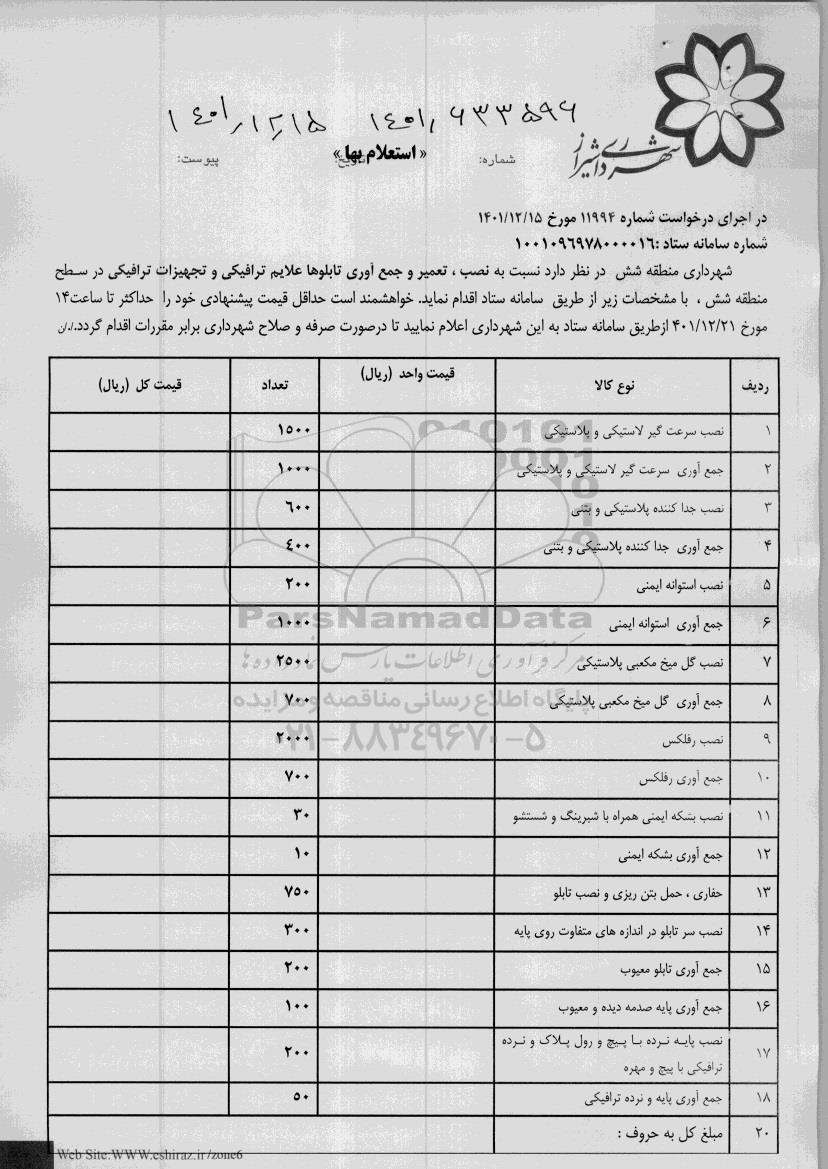 شهرداری شیراز
۱۴۰۱/۶۳۳۵۹۶ ۱۴۰۱/۱۲/۱۵
شماره: تاریخ: پیوست:
« استعلام بها »
در اجرای درخواست شماره ۱۱۹۹۴ مورخ ۱۴۰۱/۱۲/۱۵
شماره سامانه ستاد :۱۰۰۱۰۹۶۹۷۸۰۰۰۰۱۶
شهرداری منطقه شش در نظر دارد نسبت به نصب ، تعمیر و جمع آوری تابلوها علایم ترافیکی و تجهیزات ترافیکی در سطح
منطقه شش ، با مشخصات زیر از طریق سامانه ستاد اقدام نماید. خواهشمند است حداقل قیمت پیشنهادی خود را حداکثر تا ساعت۱۴
مورخ ۴۰۱/۱۲/۲۱ ازطریق سامانه ستاد به این شهرداری اعلام نمایید تا درصورت صرفه و صلاح شهرداری برابر مقررات اقدام گردد.
ردیف نوع کالا قیمت واحد (ریال) تعداد قیمت کل (ریال)
۱ نصب سرعت گیر لاستیکی و پلاستیکی ۱۵۰۰
۲ جمع آوری سرعت گیر لاستیکی و پلاستیکی ۱۰۰۰
۳ نصب جدا کننده پلاستیکی و بتنی ۶۰۰
۴ جمع آوری جدا کننده پلاستیکی و بتنی ۴۰۰
۵ نصب استوانه ایمنی ۲۰۰
۶ جمع آوری استوانه ایمنی ۱۰۰۰
ParsNamadData
۷ نصب گل میخ مکعبی پلاستیکی ۲۵۰۰
مرکز فرآوری اطلاعات پارس نماد داده ها
۸ جمع آوری گل میخ مکعبی پلاستیکی ۷۰۰
پایگاه اطلاع رسانی مناقصه ومزایده
۹ نصب رفلکس ۲۰۰۰
۰۲۱-۸۸۳۴۹۶۷۰-۵
۱۰ جمع آوری رفلکس ۷۰۰
۱۱ نصب بشکه ایمنی همراه با شبرینگ و شستشو ۳۰
۱۲ جمع آوری بشکه ایمنی ۱۰
۱۳ حفاری ، حمل بتن ریزی و نصب تابلو ۷۵۰
۱۴ نصب سر تابلو در اندازه های متفاوت روی پایه ۳۰۰
۱۵ جمع آوری تابلو معیوب ۲۰۰
۱۶ جمع آوری پایه صدمه دیده و معیوب ۱۰۰
۱۷ نصب پایه نرده با پیچ و رول پلاک و نرده
ترافیکی با پیچ و مهره ۲۰۰
۱۸ جمع آوری پایه و نرده ترافیکی ۵۰
۲۰ مبلغ کل به حروف :
Web Site:WWW.eshiraz.ir/zone6